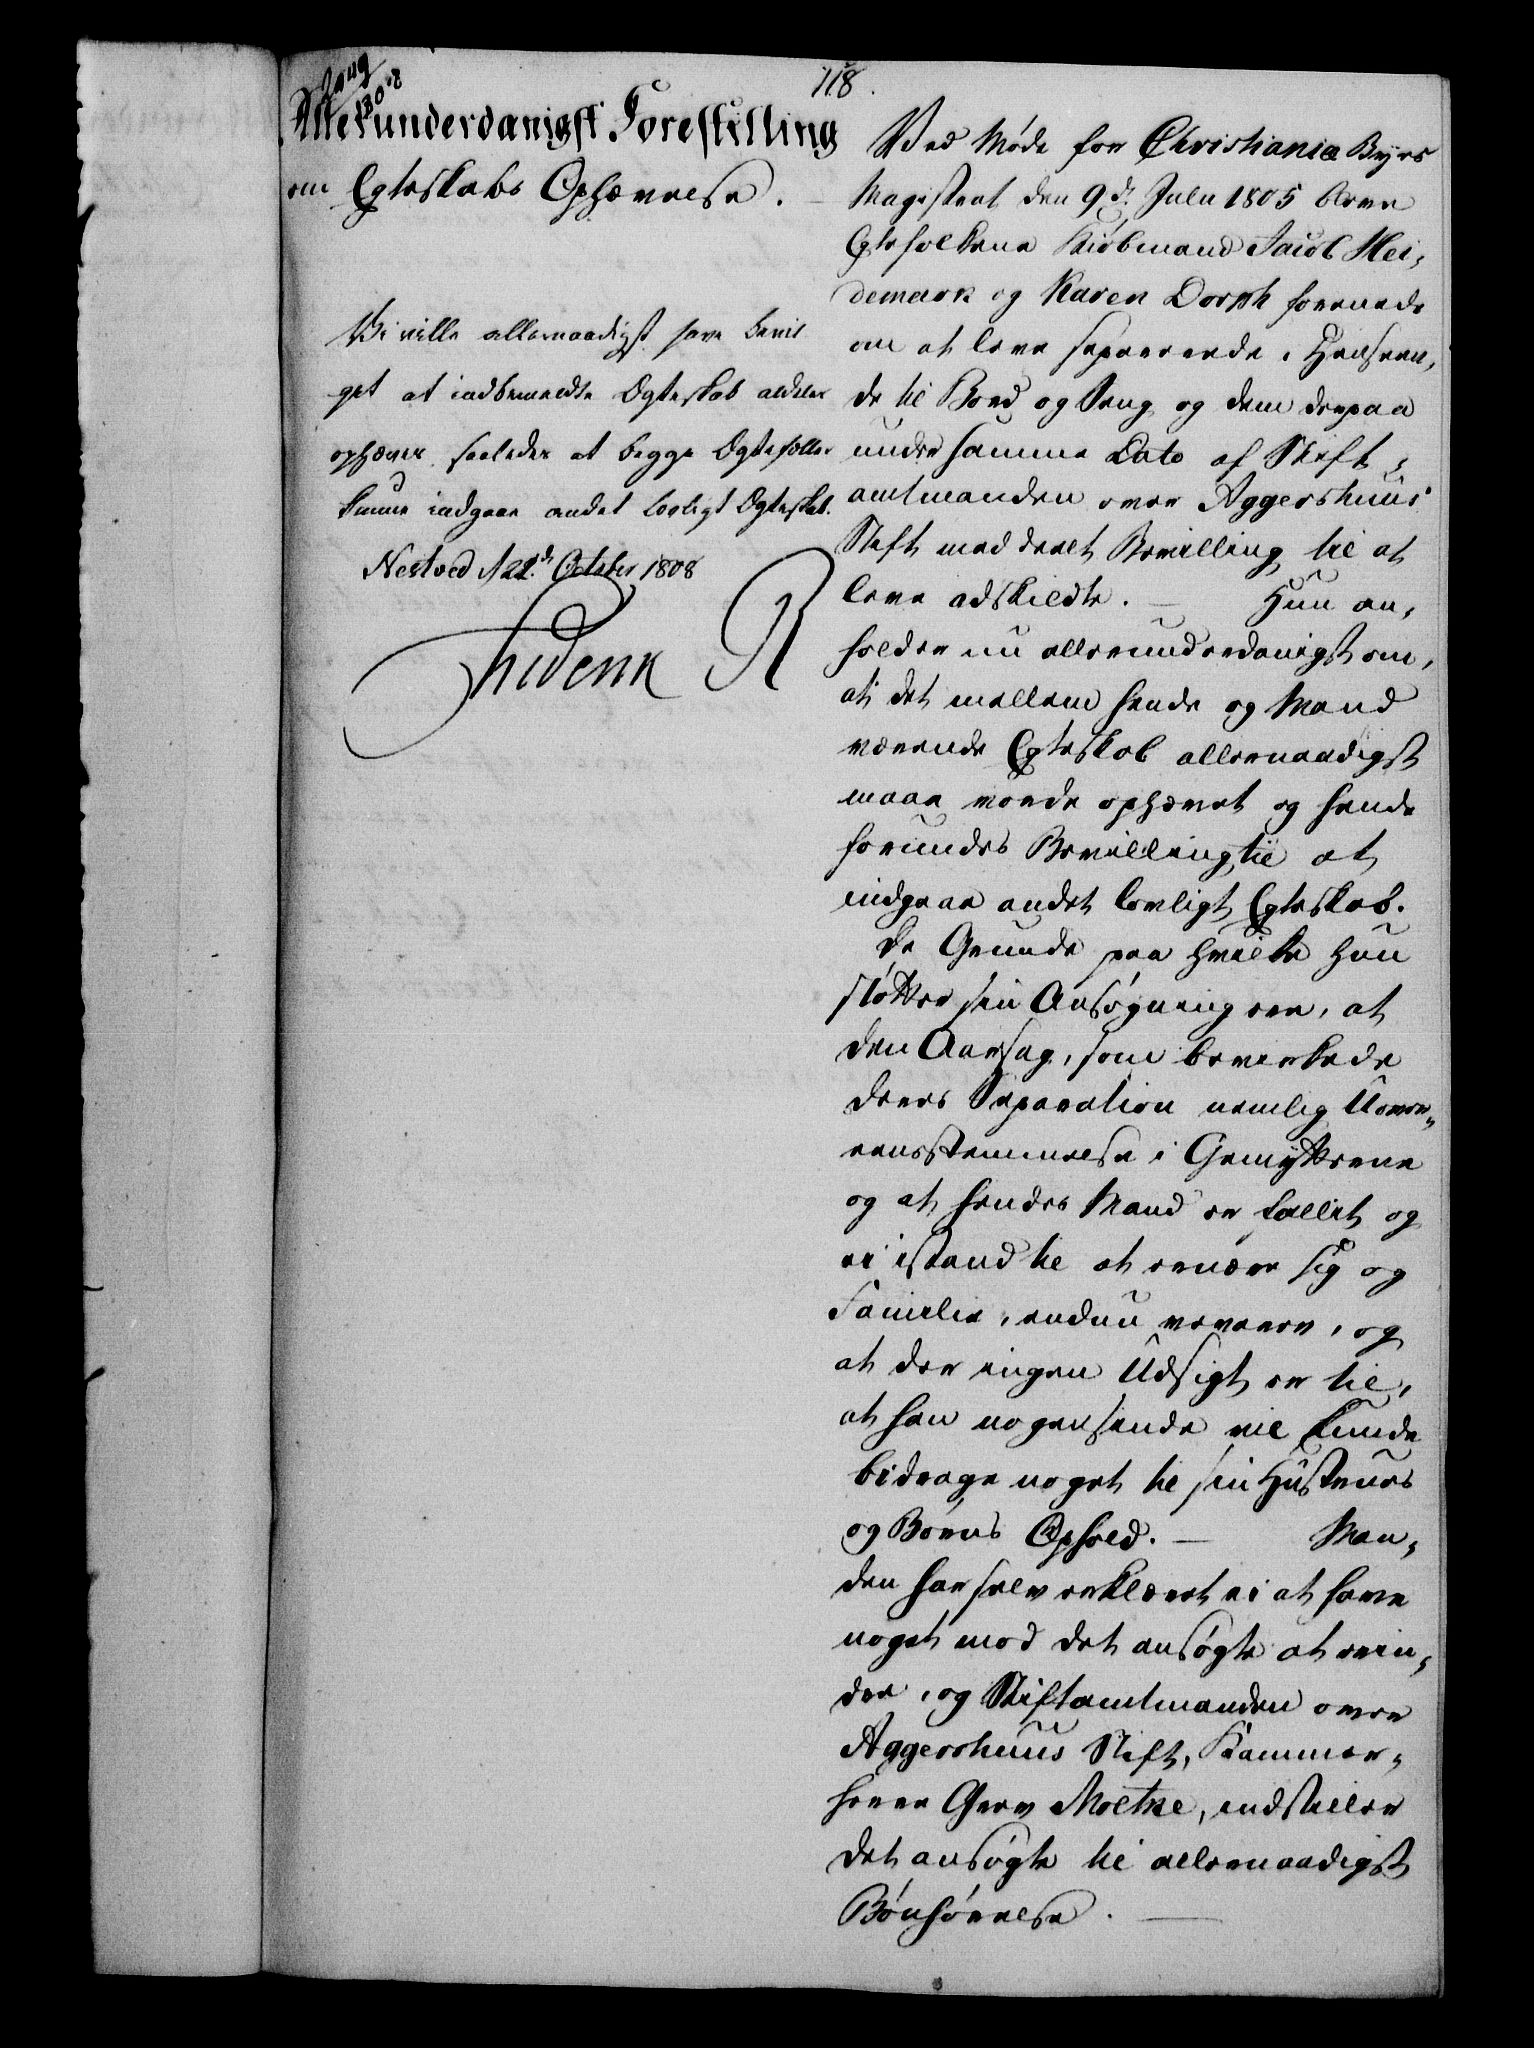 118.
Allerunderdanigst Forestilling
om Egteskabs Ophævelse.
Vi ville allernaadigst have bevil
get at indbemeldte Ægteskab aldeles
ophæves saaledes at begge Ægtefæller
kunne indgaae andet lovligt Ægteskab.
Nestved d 22.d October 1808
Friderik R
Ved Møde for Christiania Byes
Magistrat den 9d. Julii 1805 bleve
Egtefolkene Kiøbmand Jacob Hei,
demark og Karen Dorph forenede
om at leve separerede, i Henseen,
de til Bord og Seng og dem derpaa
under samme Dato af Stift,
amtmanden over Aggershuus
Stift meddeelt Bevilling til at
leve adskildte. — Hun an,
holder nu allerunderdanigst om,
at det mellem hende og Mand
værende Egteskab allernaadigst
maae vorde ophævet og hende
forundes Bevilling til at
indgaae andet lovligt Egteskab.
De Grunde paa hvilke hun
støtter sin Ansøgning ere, at
den Aarsag, som bevirkede
deres Separation nemlig Uover„
eensstemmelse i Gemytterne
og at hendes Mand er fallit og
ei istand til at ernære sig og
Familie, endnu varer, og
at der ingen Udsigt er til,
at han nogensinde vil kunde
bidrage noget til sin Hustrues
og Børns Ophold. — Man,
den har selv erklæret ei at have
noget mod det ansøgte at erin,
dre, og Stiftamtmanden over
Aggershuus Stift, Kammer,
herre Grev Moltke, indstiller
det ansøgte til allernaadigst
Bønhørelse. —